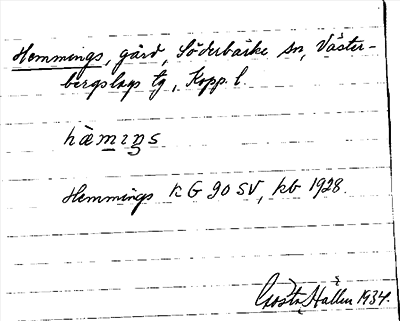 Hemmings, gård, Söderbärke sn, Väster-
bergslags tg, Kopp. l.
hæ̀mıŋs
Hemmings k G 90 SV, kb 1928.
Gösta Hallin 1934.